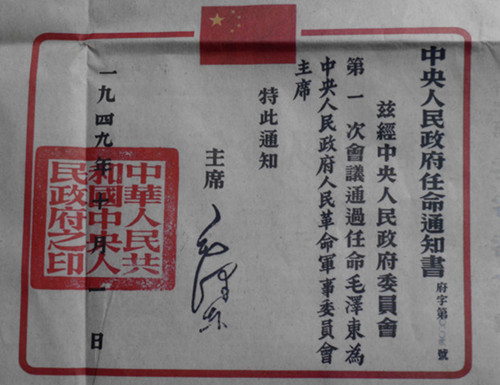 中央人民政府任命通知書
府字第 號
茲經中央人民政府委員會
第一次會議通過任命毛澤東為
中央人民政府人民革命軍事委員會
主席
特此通知
主席
毛澤東
一九四九年十月一日
中華人民共
和國中央人
民政府之印